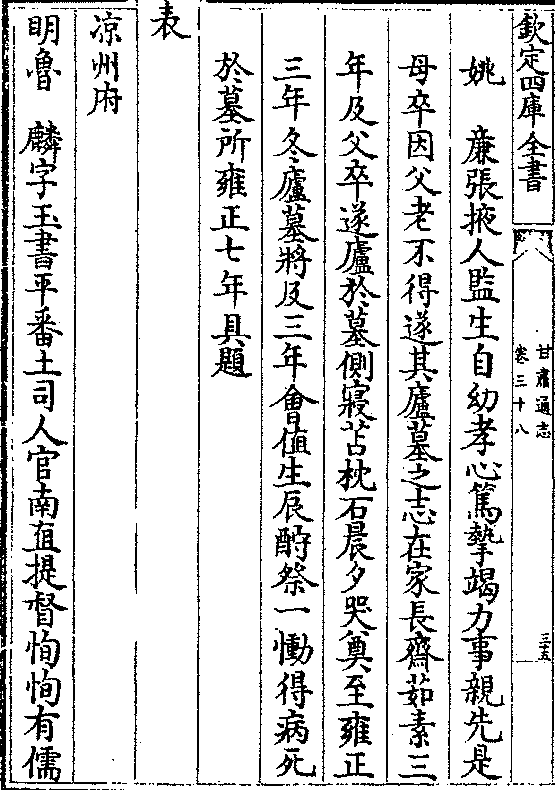 欽定四庫全書
甘肅通志
卷三十八
三十五
姚　廉張掖人監生自幼孝心篤摯竭力事親先是
母卒因父老不得遂其廬墓之志在家長齋茹素三
年及父卒遂廬於墓側寢苫枕石晨夕哭奠至雍正
三年冬廬墓將及三年會值生辰酹祭一慟得病死
於墓所雍正七年具題
表
凉州府
明魯　麟字玉書平番土司人官南直提督恂恂有儒